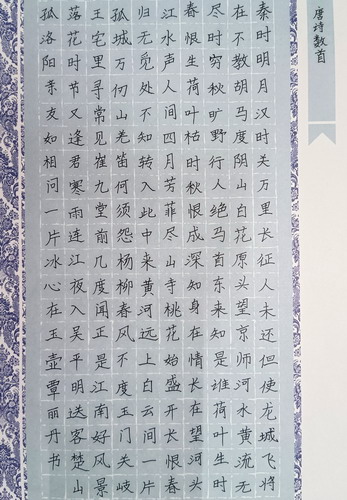 唐诗数首
秦时明月汉时关万里长征人未还但使龙城飞将
在不教胡马度阴山白花原头望京师黄河水流无
尽时穷秋旷野行人绝马首东来知是谁荷叶生时
春恨生荷叶枯时秋恨成深知身在情长在望江头
江水声人间四月芳菲尽山寺桃花始盛开长恨春
归无觅处不知转入此中来黄河远上白云间一片
孤城万仞山羌笛何须怨杨柳春风不度玉门关岐
王宅里寻常见崔九堂前几度闻正是江南好风景
落花时节又逢君寒雨连江夜入吴平明送客楚山
孤洛阳亲友如相问一片冰心在玉壶覃丽丹书